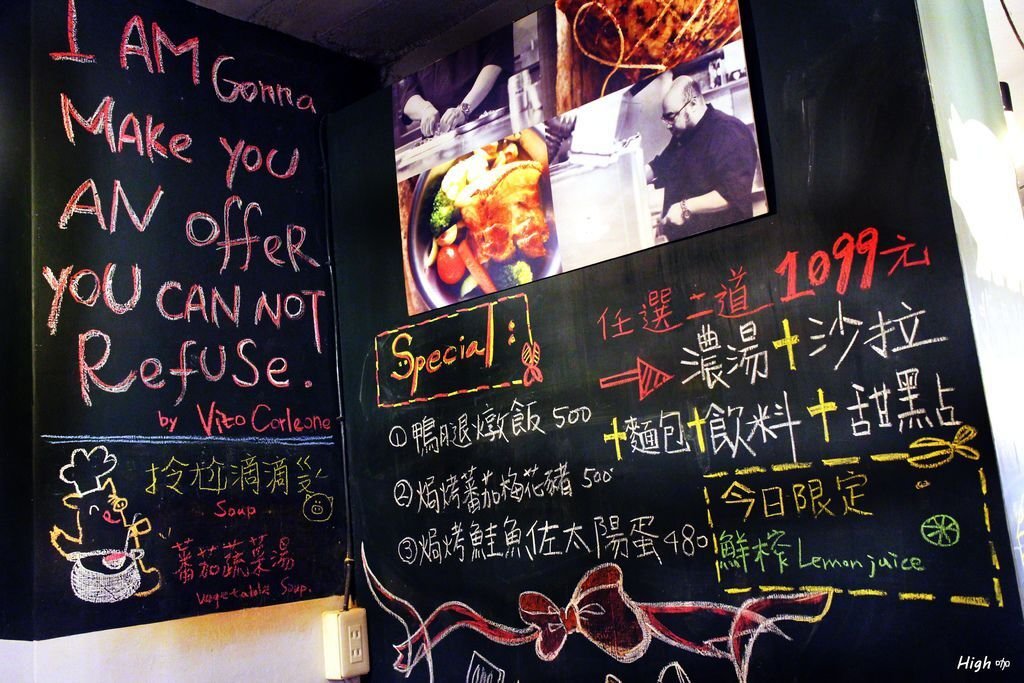 I AM Gonna
MAKE YOU
AN offER
YOU CAN NOT
REfUSE.
by Vito Corleone
拎尬滴滴
Soup
蕃茄蔬菜湯
Vegetable Soup.
Special:
①鴨腿燉飯 500
②焗烤蕃茄梅花豬 500
③焗烤鮭魚佐太陽蛋 480
任選二道 1099元
濃湯+沙拉
+麵包+飲料+甜點
今日限定
鮮榨 Lemon juice
High